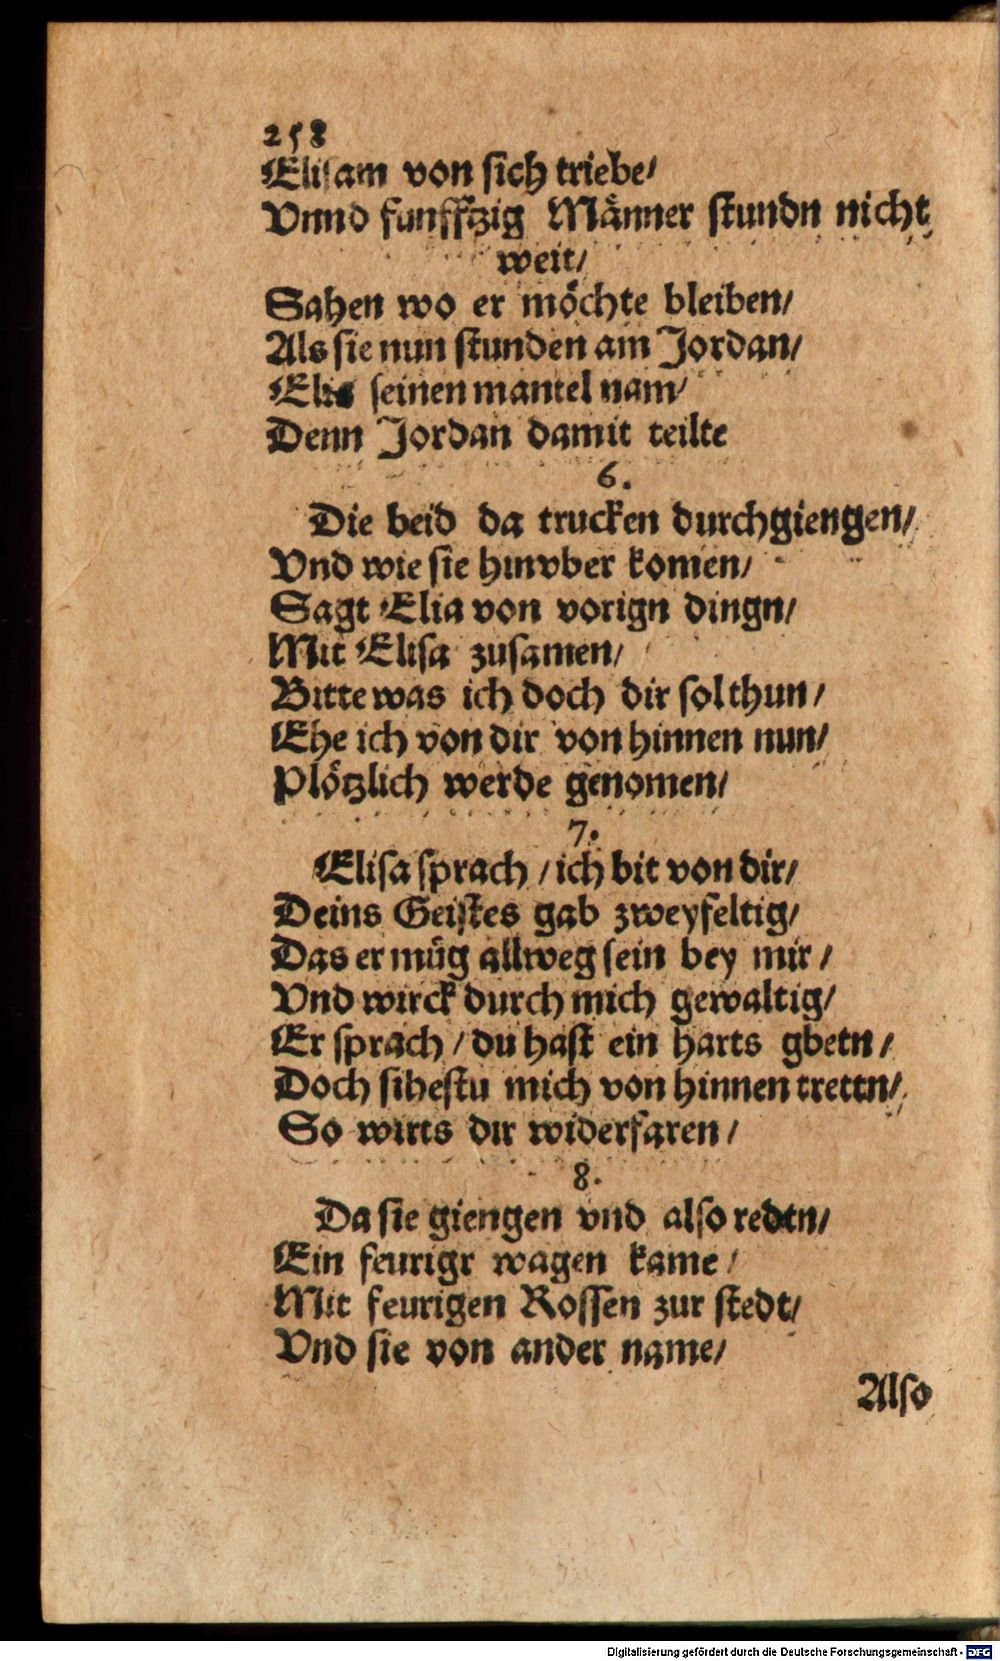 258
Elisam von sich triebe/
Vnnd funfftzig Männer stundn nicht
weit/
Sahen wo er möchte bleiben/
Als sie nun stunden am Jordan/
Elis seinen mantel nam/
Denn Jordan damit teilte
6.
Die beid da trucken durchgiengen/
Vnd wie sie hinvber komen/
Sagt Elia von vorign dingn/
Mit Elisa zusamen/
Bitte was ich doch dir sol thun/
Ehe ich von dir von hinnen nun/
Plötzlich werde genomen/
7.
Elisa sprach / ich bit von dir/
Deins Geistes gab zweyfeltig/
Das er müg allweg sein bey mir/
Vnd wirck durch mich gewaltig/
Er sprach / du hast ein harts gbetn/
Doch sihestu mich von hinnen trettn/
So wirts dir widerfaren/
8.
Da sie giengen vnd also redtn/
Ein feurigr wagen kame/
Mit feurigen Rossen zur stedt/
Vnd sie von ander name/
Also
Digitalisierung gefördert durch die Deutsche Forschungsgemeinschaft - DFG